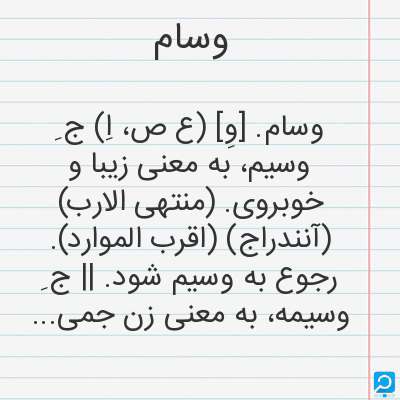 وسام
وسام. [وِ] (ع ص، اِ) ج ِ
وسیم، به معنی زیبا و
خوبروی. (منتهی الارب)
(آنندراج) (اقرب الموارد).
رجوع به وسیم شود. || ج ِ
وسیمه، به معنی زن جمی...